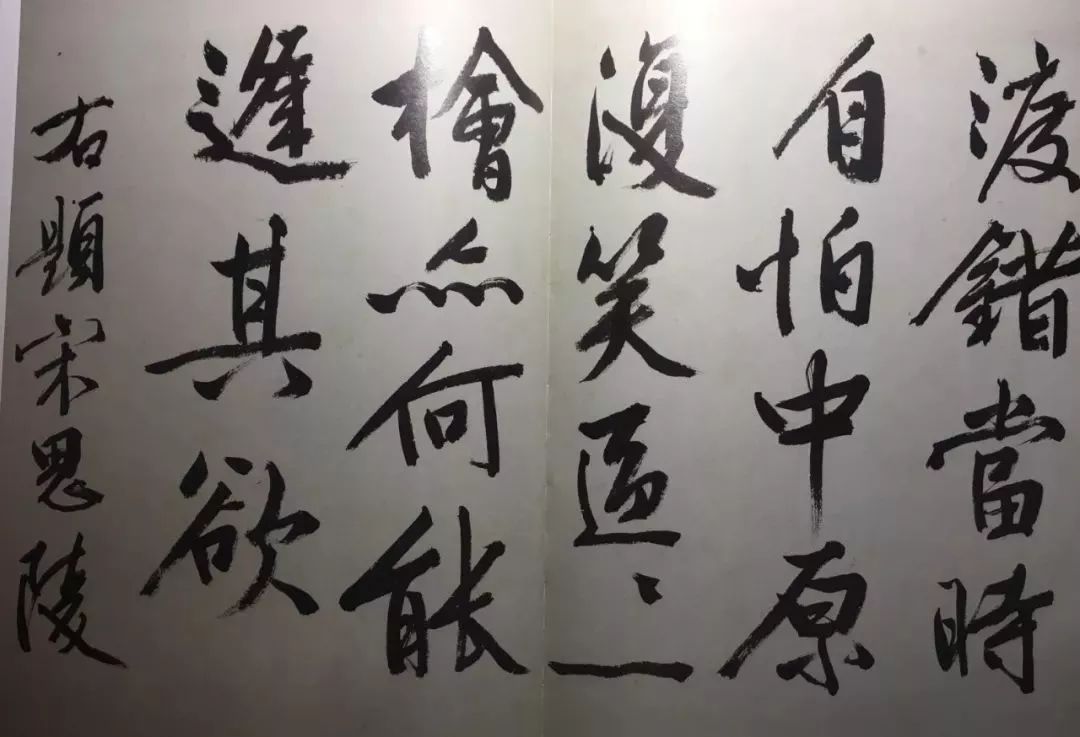 渡錯當時
自怕中原
復笑區〻一
檜亦何能
逢其欲
右題宋思陵